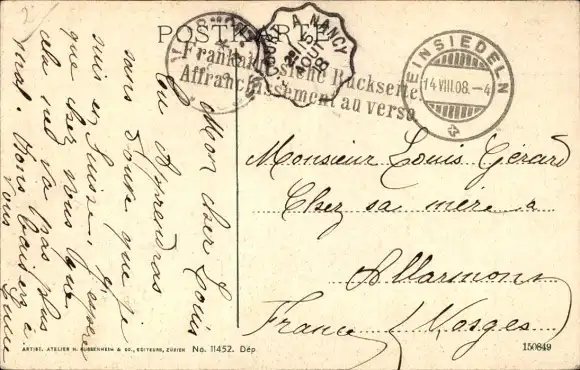 POSTKARTE
A NANCY
15
AOUT
08
EINSIEDELN
14.VIII.08.-4
Frankatur siehe Rückseite.
Affranchissement au verso.
Mon cher Louis
Tu Apprendras
sans doute que je
suis en Suisse, j'espère
que chez vous tout
va pas plus
mal. Vous
Monsieur Louis Gérard
Chez sa mère a
Allarmont
France Vosges
ARTIST. ATELIER H. GUGGENHEIM & CO., EDITEURS, ZÜRICH No. 11452. Dép.
150849